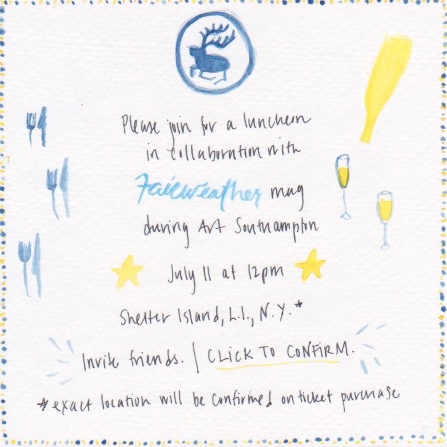 Please join for a luncheon
in collaboration with
Fairweather mag
during Art Southampton
July 11 at 12pm
Shelter Island, L.I., N.Y.*
Invite friends. | CLICK TO CONFIRM.
*exact location will be confirmed on ticket purchase